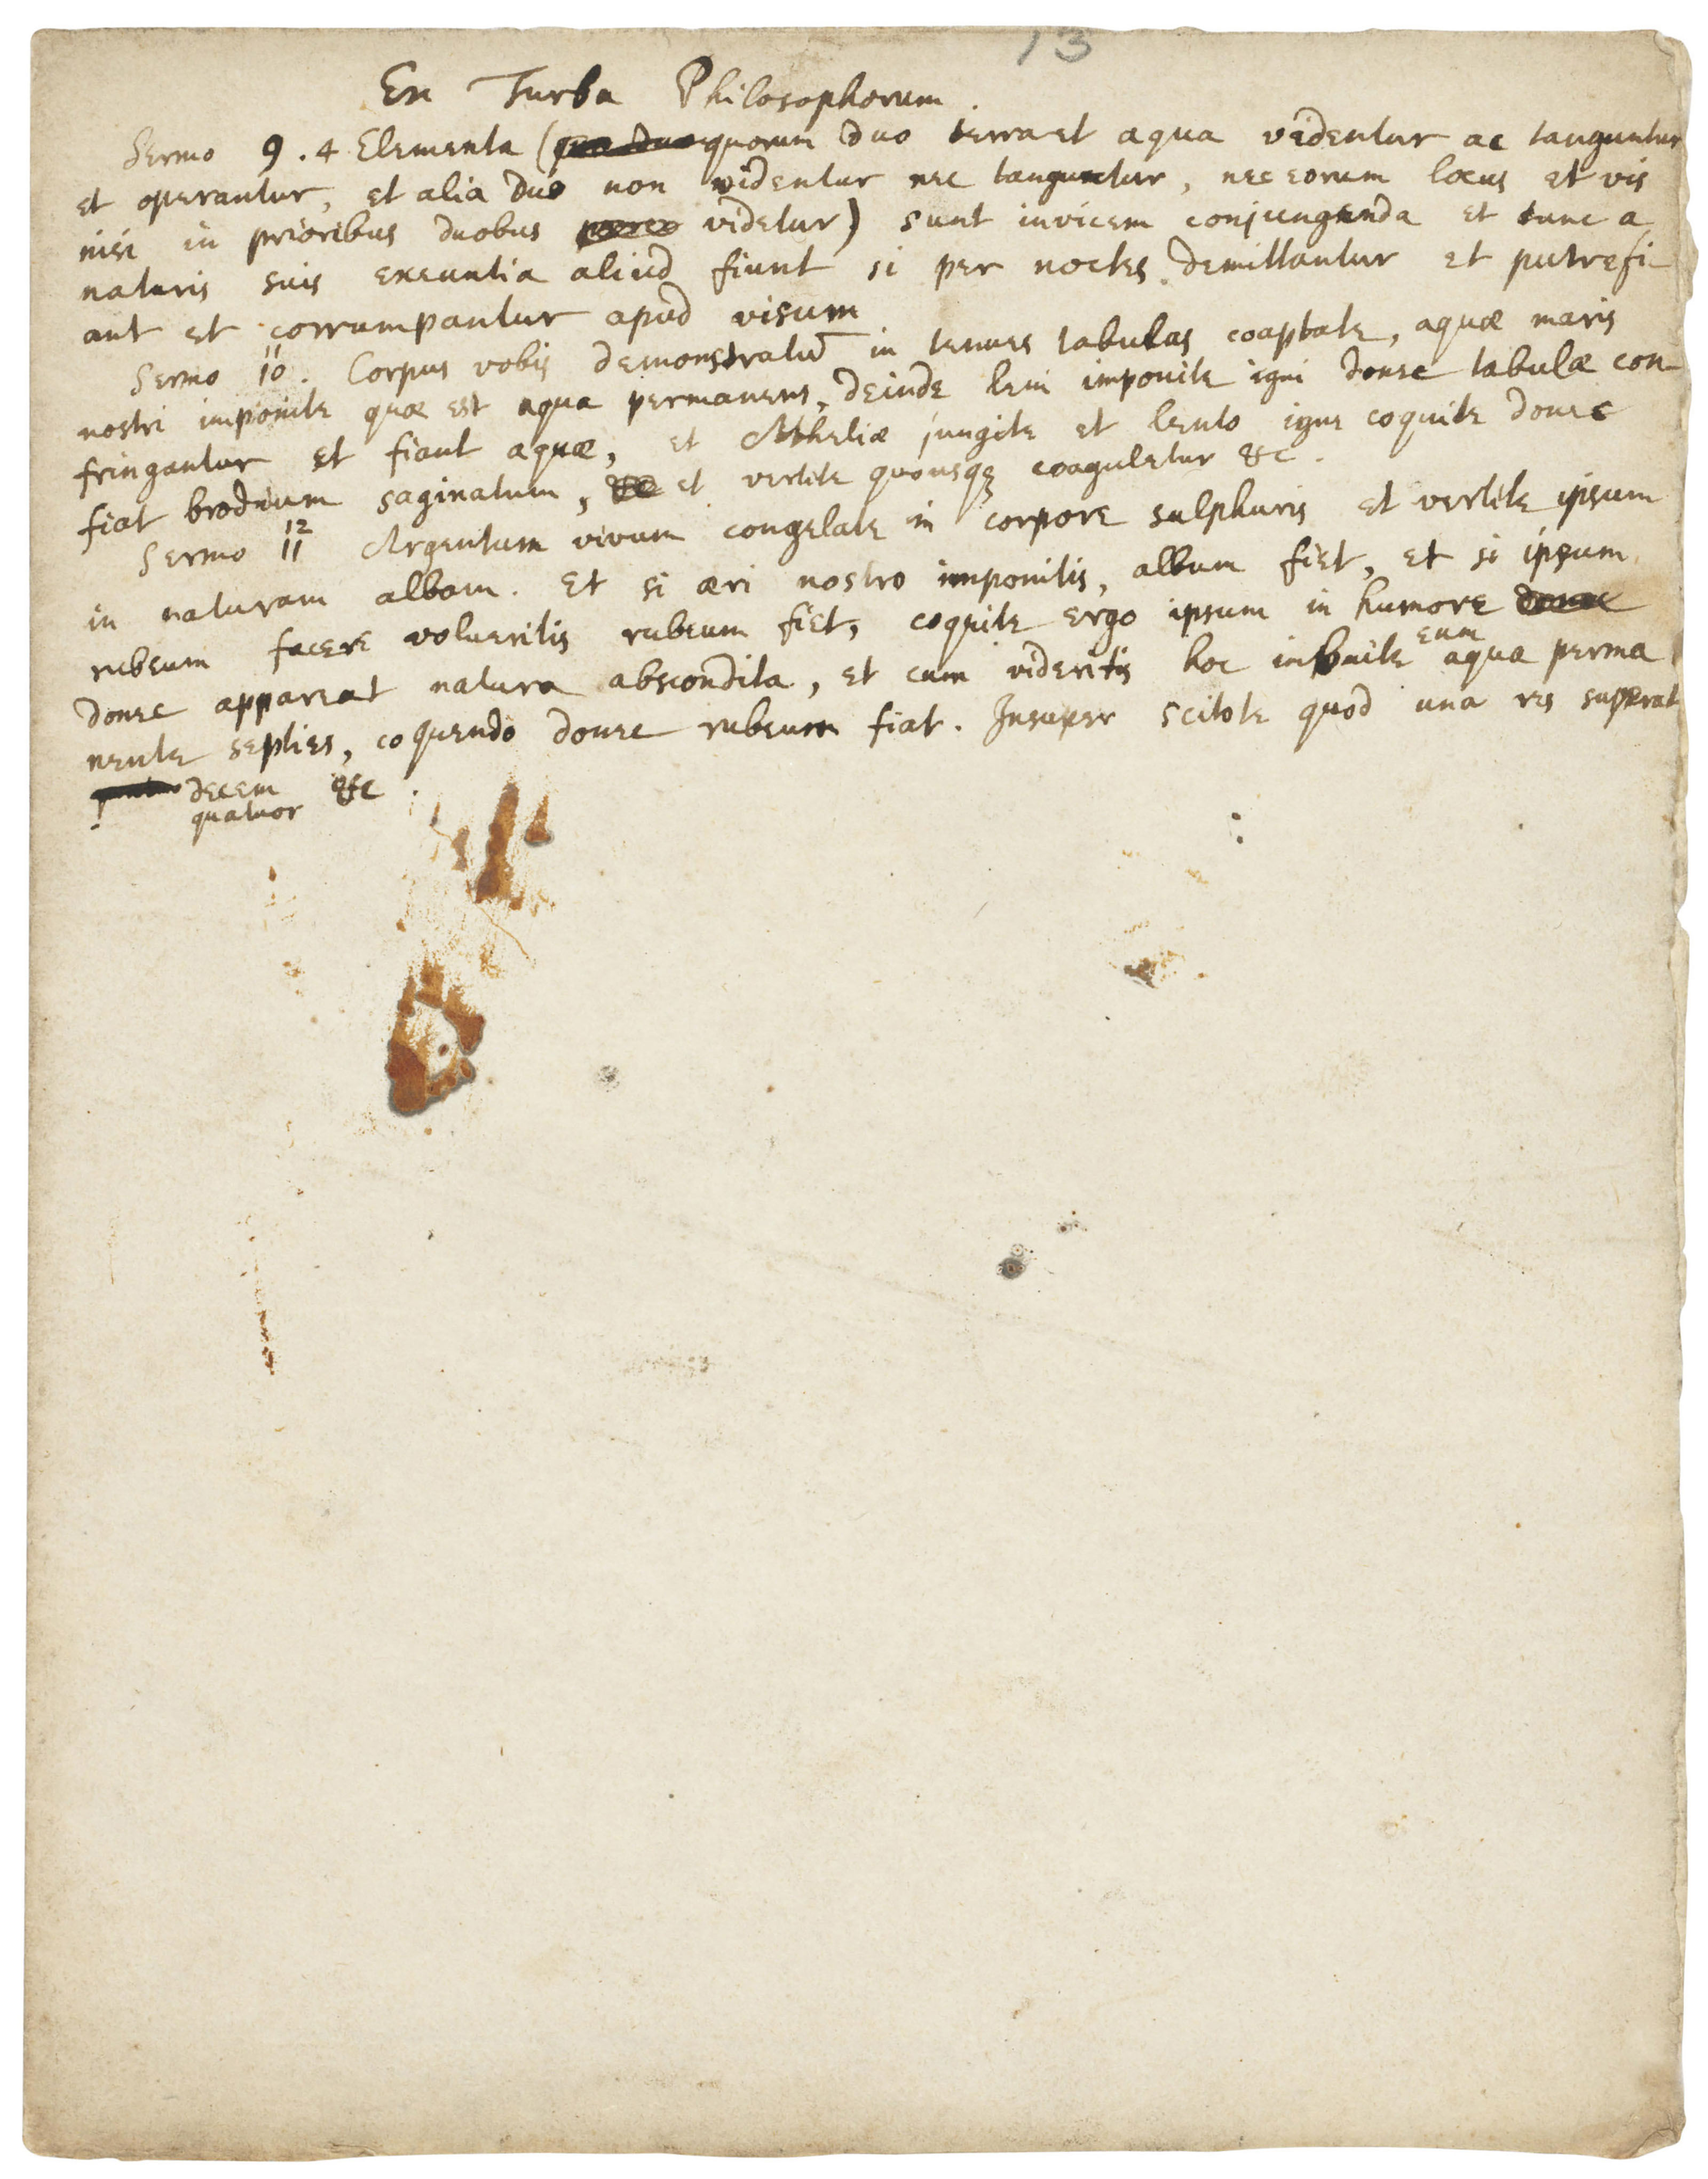 13
Ex Turba Philosophorum.
Sermo 9. 4 Elementa (quorum duo terra et aqua videntur ac tanguntur
et operantur, et alia duo non videntur nec tanguntur, nec eorum locus et vis
nisi in prioribus duobus videtur) sunt invicem conjungenda et tunc a
naturis suis exeuntia aliud fiunt si per noctes demittantur et putrefi-
ant et corrumpantur apud visum
11
Sermo 10. Corpus vobis demonstratū in tenues tabulas coaptate, aquæ maris
nostri imponite quæ est aqua permanens, deinde leni imponite igni donec tabulæ con-
fringantur et fiant aquæ, et Atheliæ jungite et lento igne coquite donec
fiat brodium saginatum, et vertite quousqꝫ coaguletur &c.
12
Sermo 11 Argentum vivum congelate in corpore sulphuris et vertite ipsum
in naturam albam. Et si æri nostro imponitis, album fiet, et si ipsum
rubeum facere volueritis rubeum fiet, coquite ergo ipsum in humore donec
eum
donec appareat natura abscondita, et cum videritis hoc imbuite aqua perma
nente septies, coquendo donec rubeum fiat. Insuper scitote quod una res superat
decem &c.
quatuor